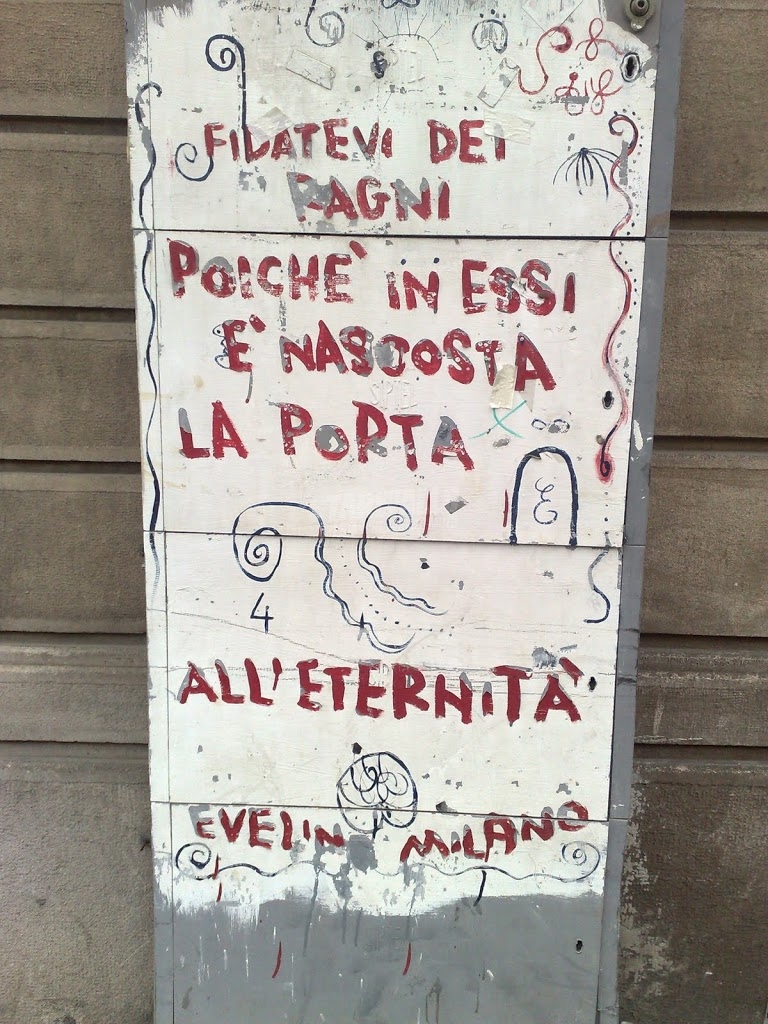 FIDATEVI DEI
RAGNI
POICHE' IN ESSI
E' NASCOSTA
LA PORTA
E
4
ALL'ETERNITÀ
EVELIN MILANO